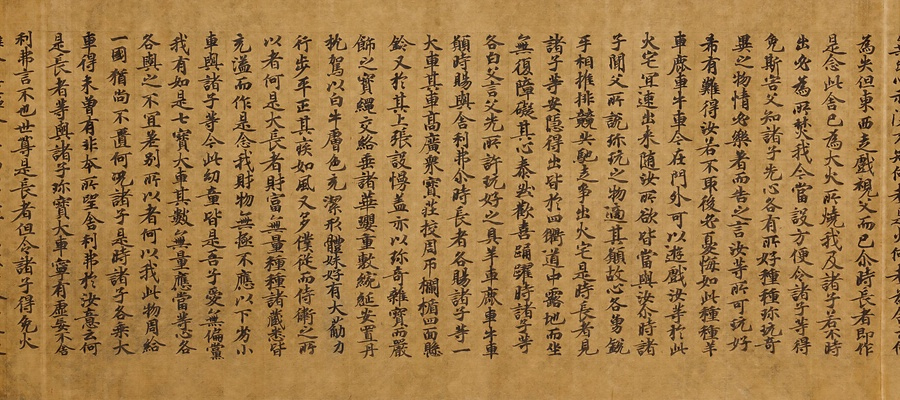 為失但東西走戲視父而已尒時長者即作
是念此舍已為大火所燒我及諸子若不時
出必為所焚我今當設方便令諸子等得
免斯害父知諸子先心各有所好種種珎玩奇
異之物情必樂著而告之言汝等所可玩好
希有難得汝若不取後必憂悔如此種種羊
車鹿車牛車今在門外可以遊戲汝等於此
火宅宜速出來随汝所欲皆當與汝尒時諸
子聞父所說珎玩之物適其願故心各勇銳
手相推排競共馳走爭出火宅是時長者見
諸子等安隱得出皆於四衢道中露地而坐
無復障礙其心泰然歡喜踊躍時諸子等
各白父言父先所許玩好之具羊車鹿車牛車
願時賜與舍利弗尒時長者各賜諸子等一
大車其車高廣衆寶莊校周帀欄楯四面懸
鈴又於其上張設幰蓋亦以珎奇雜寶而嚴
飾之寶繩交絡垂諸華瓔重敷綩綖安置丹
枕駕以白牛膚色充潔形體姝好有大筋力
行步平正其疾如風又多僕從而侍衛之所
以者何是大長者財富無量種種諸藏悉皆
充溢而作是念我財物無極不應以下劣小
車與諸子等今此幼童皆是吾子愛無偏黨
我有如是七寶大車其數無量應當等心各
各與之不宜差別所以者何以我此物周給
一國猶尚不匱何況諸子是時諸子各乘大
車得未曾有非本所望舍利弗於汝意云何
是長者等與諸子珎寶大車寧有虛妄不舍
利弗言不也世尊是長者但令諸子得免火